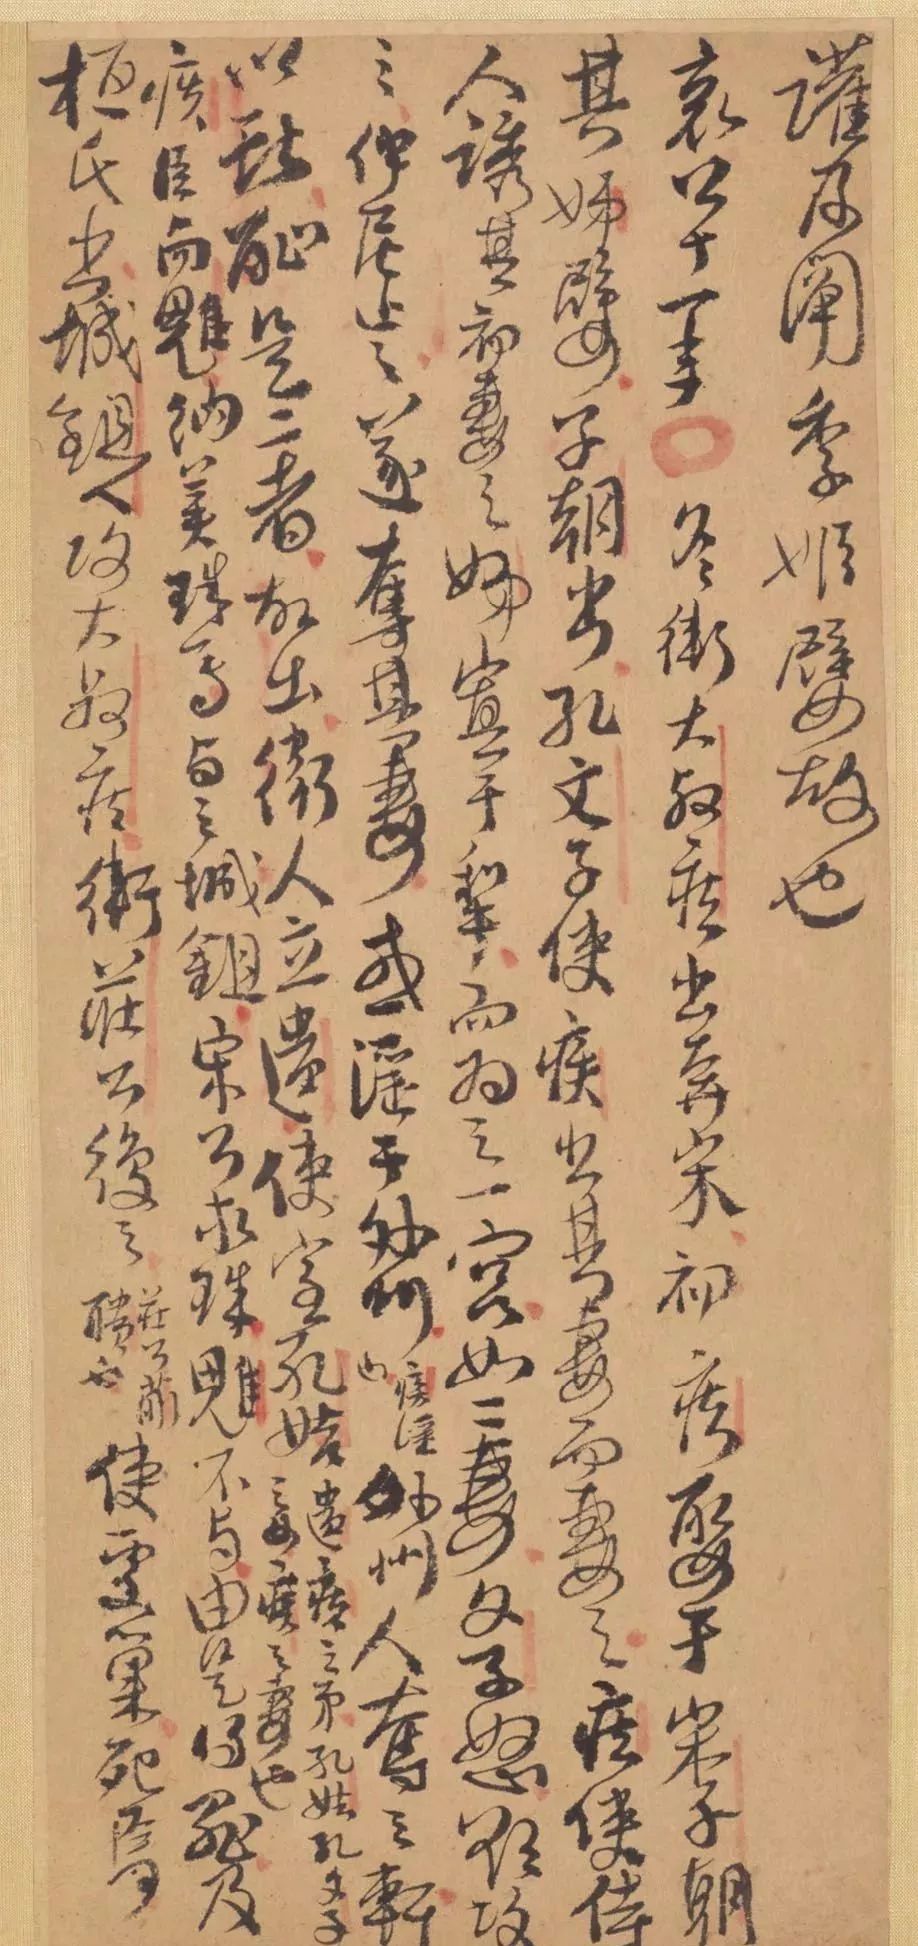 讙及闡季姬嬖故也
哀公十一年冬衛大叔疾出奔宋初疾娶于宋子朝
其娣嬖子朝出孔文子使疾出其妻而妻之疾使侍
人誘其初妻之娣寘于犁而為之一宮如二妻文子怒欲攻
之仲尼止之遂奪其妻或淫于外州疾淫也外州人奪之軒
以獻恥是二者故出衛人立遺使室孔姞遺疾之弟孔姞孔文子之女疾之妻也
疾臣向魋納美珠焉與之城鉏宋公求珠魋不與由是得罪及
桓氏出城鉏人攻大叔疾衛莊公復之莊公蒯聵也使處巢死焉